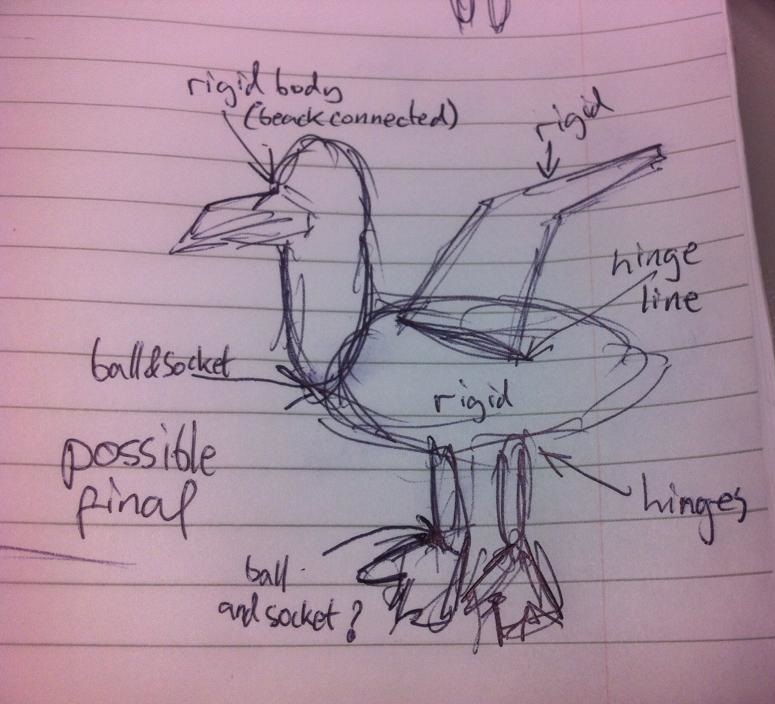 rigid body
(beack connected)
rigid
hinge
line
ball&socket
rigid
possible
final
hinges
ball
and socket?